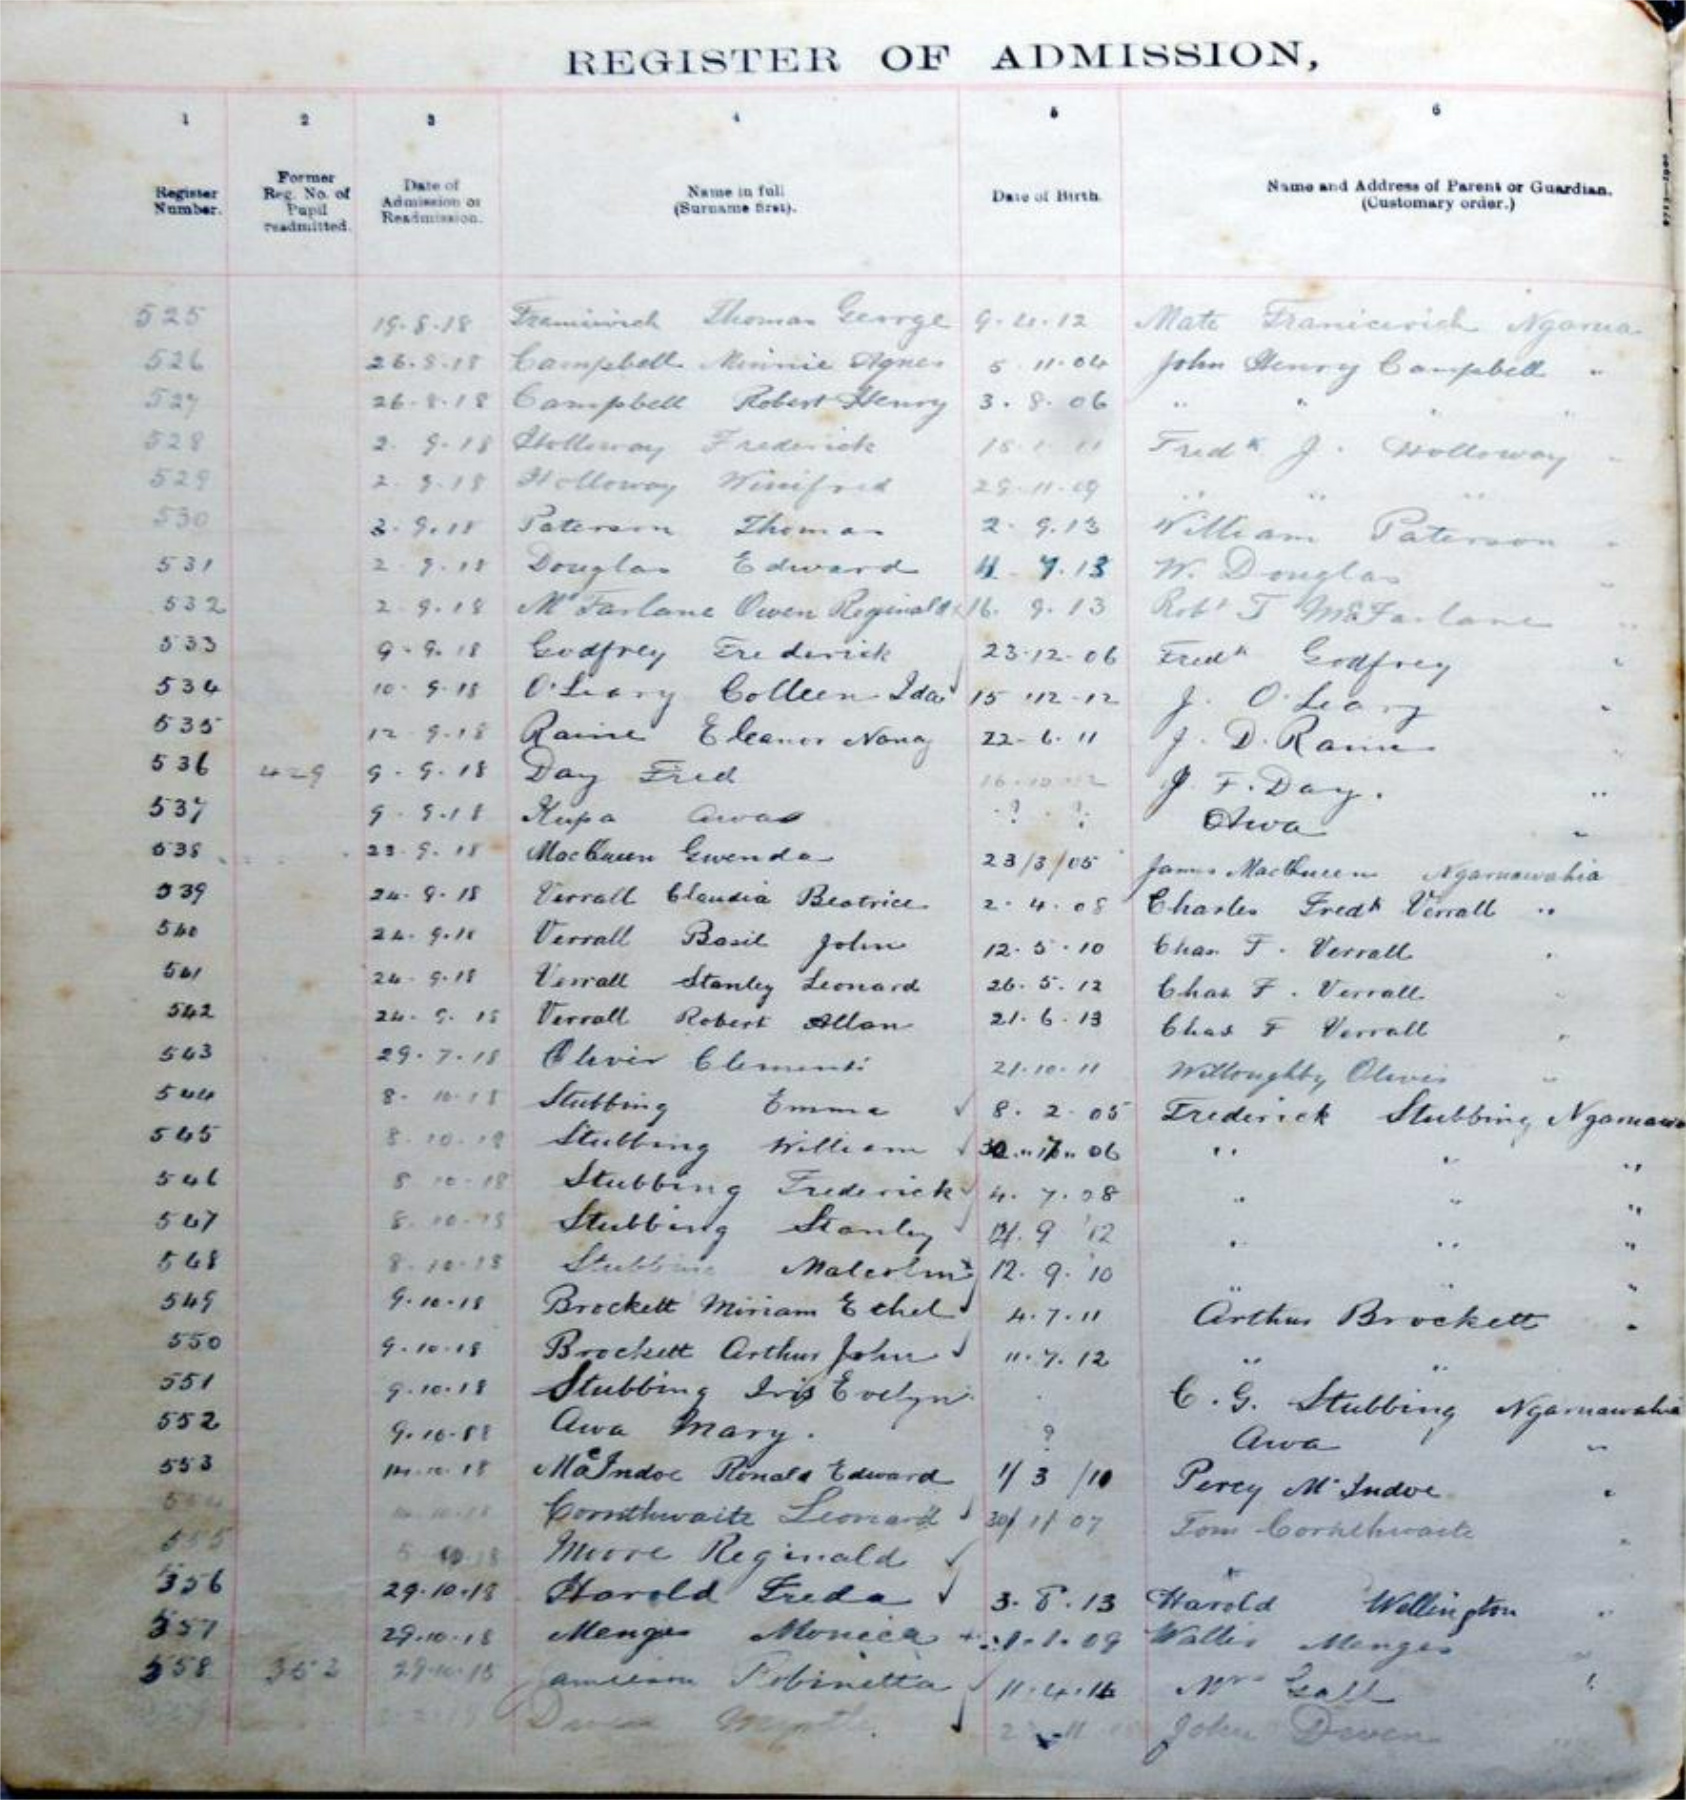 REGISTER OF ADMISSION,
1 2 3 4 5 6
Register Number. Former Reg. No. of Pupil readmitted. Date of Admission or Readmission. Name in full (Surname first). Date of Birth. Name and Address of Parent or Guardian. (Customary order.)
525 19.8.18 Thomas George 9.4.12 Mate
526 26.8.18 Campbell Minnie Agnes 5 11.04 John Henry Campbell "
527 26.8.18 Campbell Robert Henry 3.8.06 " " " "
528 2. 9.18 Holloway Frederick Fredk J. Holloway "
529 2.9.18 Holloway Winifred 29.11.09 " " "
530 2.9.18 Paterson Thomas 2.9.13 William Paterson "
531 2.9.18 Douglas Edward 4.7.13 W. Douglas "
532 2.9.18 McFarlane Owen Reginald 16.9.13 Robt J McFarlane "
533 9.9.18 Godfrey Frederick 23.12.06 Fredk Godfrey "
534 10.9.18 O'Leary Colleen Ida 15.12.12 J. O'Leary "
535 12.9.18 Raine Eleanor Nona 22.6.11 J. D. Raine "
536 429 9.9.18 Day Fred J. F. Day. "
537 9.9.18 Kupa Awa ? ? Awa "
538 23.9.18 MacQueen Gwenda 23/3/05 James MacQueen Ngaruawahia
539 24.9.18 Verrall Claudia Beatrice 2.4.08 Charles Fredk Verrall "
540 24.9.18 Verrall Basil John 12.5.10 Chas F. Verrall "
541 24.9.18 Verrall Stanley Leonard 26.5.12 Chas F. Verrall "
542 24.9.18 Verrall Robert Allan 21.6.13 Chas F Verrall "
543 29.7.18 Oliver Clement 21.10.11 Willoughby Oliver "
544 8.10.18 Stubbing Emma ✓ 8.2.05 Frederick Stubbing
545 8.10.18 Stubbing William ✓ 06 " " "
546 8 10.18 Stubbing Frederick ✓ 4.7.08 " " "
547 8.10.18 Stubbing Stanley ✓ 9 '12 " " "
548 8.10.18 Stubbing Malcolm 12.9.'10 " " "
549 9.10.18 Brockett Miriam Ethel ✓ 4.7.11 Arthur Brockett "
550 9.10.18 Brockett Arthur John ✓ 11.7.12 " "
551 9.10.18 Stubbing Iris Evelyn C. G. Stubbing Ngaruawahia
552 9.10.18 Awa Mary. ? Awa "
553 14.10.18 McIndoe Ronald Edward 1/3/10 Percy McIndoe "
554 Cornthwaite Leonard ✓ 30/11/07 Tom Cornthwaite "
555 Moore Reginald ✓
556 29.10.18 Harold Freda ✓ 3.8.13 Harold Wellington "
557 29.10.18 Menges Monica 1.1.09 Wallis Menges "
558 352 29.10.18 Jamieson Robinetta ✓ 11.4.14 Mrs Gall "
Myrtle. ✓ John